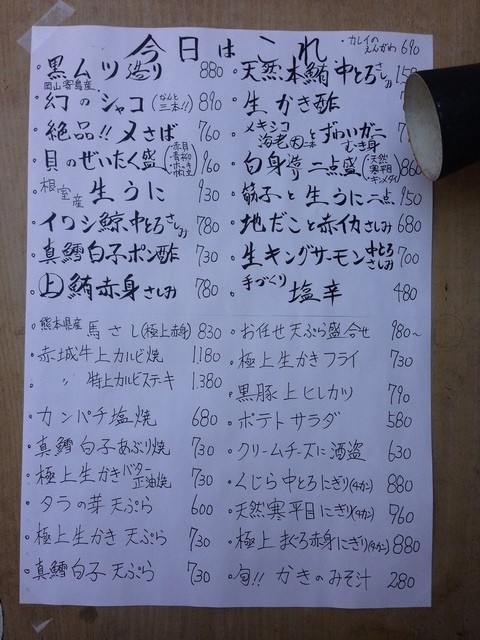 今日はこれ
・カレイのえんがわ 690
・黒ムツ造り 880
・岡山寄島産 幻のシャコ(なんと三本!!) 890
・絶品!!〆さば 760
・貝のぜいたく盛 960
・根室産 生うに 930
・イワシ鯨中とろさしみ 780
・真鱈白子ポン酢 730
・上鮪赤身さしみ 780
・天然本鮪中とろさしみ
・生かき酢
・メキシコ海老 ずわいガニむき身
・白身造り二点盛(天然寒平目 キンメダイ) 860
・筋子と生うに二点 950
・地だこと赤イカさしみ 680
・生キングサーモン中とろさしみ 700
・手づくり塩辛 480
・熊本県産 馬さし(極上赤身) 830
・赤城牛上カルビ焼 1.180
・〃 特上カルビステキ 1.380
・カンパチ塩焼 680
・真鱈白子あぶり焼 730
・極上生かきバター正油焼 730
・タラの芽天ぷら 600
・極上生かき天ぷら 730
・真鱈白子天ぷら 730
・お任せ天ぷら盛合せ 980~
・極上生かきフライ 730
・黒豚上ヒレカツ 790
・ポテトサラダ 580
・クリームチーズに酒盗 630
・くじら中とろにぎり(4カン) 880
・天然寒平目にぎり(4カン) 760
・極上まぐろ赤身にぎり(4カン) 880
・旬!!かきのみそ汁 280